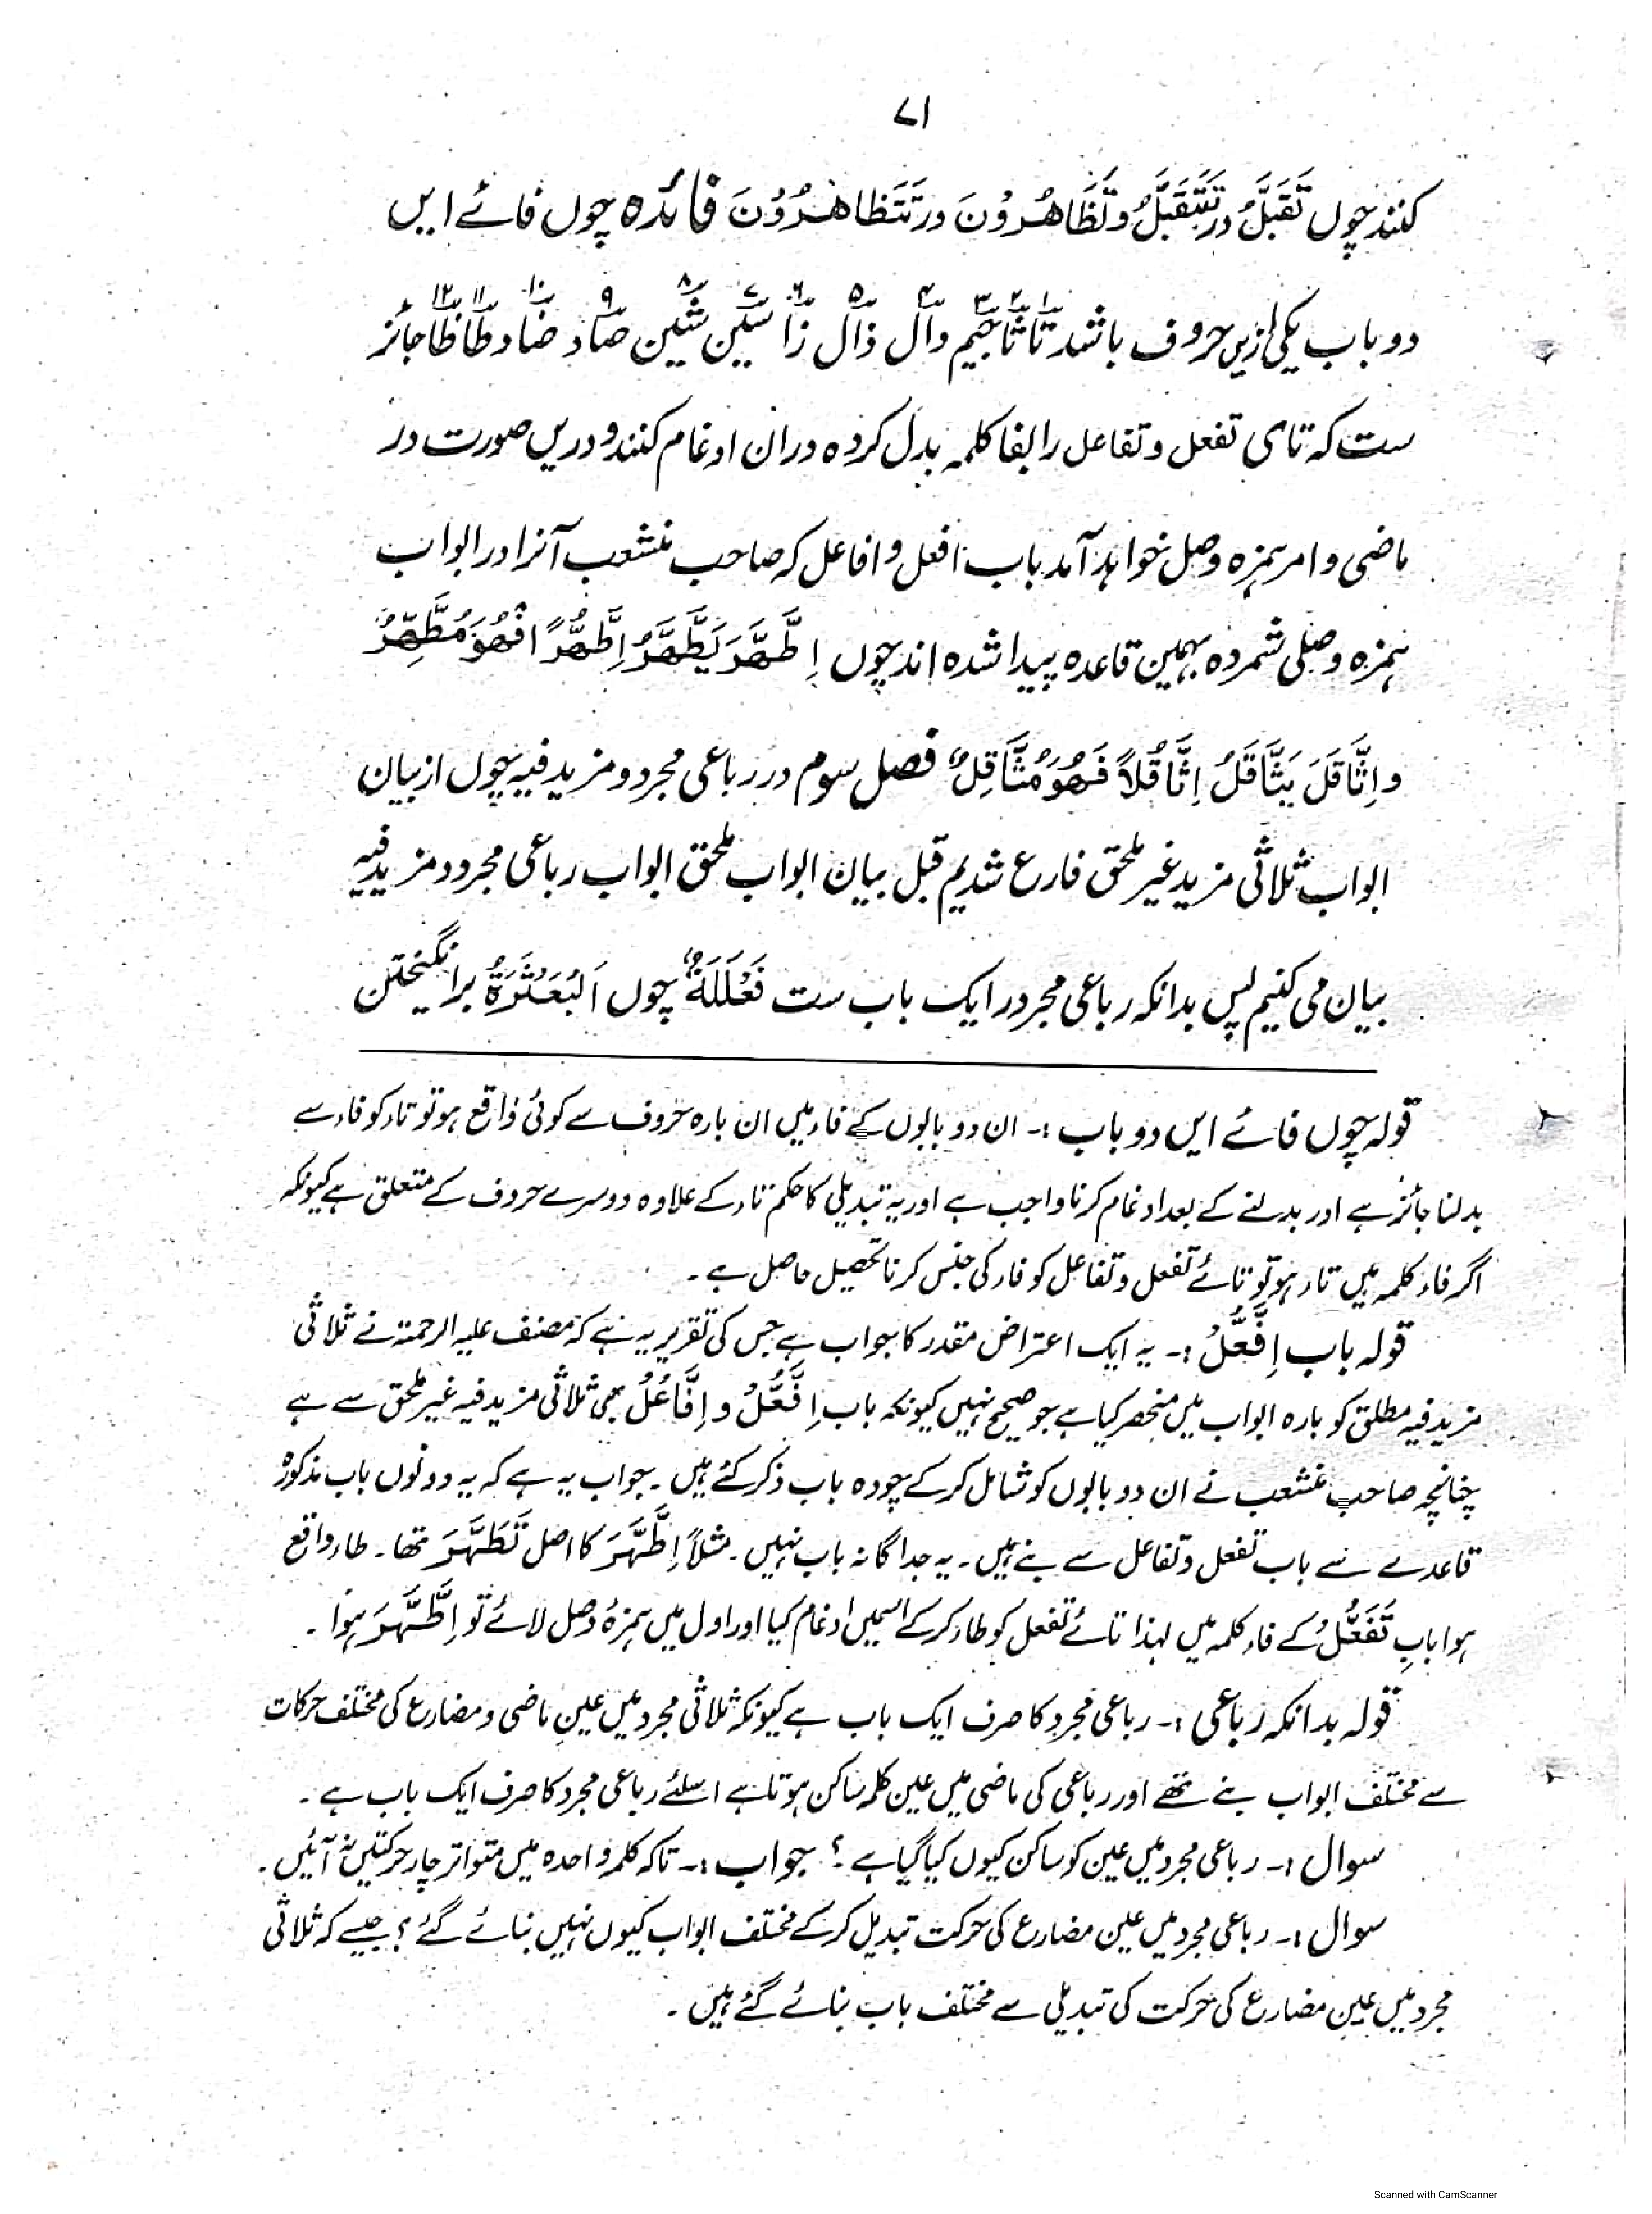 ۷۱
کنند چوں تَقَبَّلُ در تَتَقَبَّلُ وتَظَاهَرُوْنَ در تَتَظَاهَرُوْنَ فائدہ چوں فائے ایں
دو باب یکی ازیں حروف باشد تا ثا جیم دال ذال زا سین شین صاد ضاد طا ظا جائز
۱ ۲ ۳ ۴ ۵ ۶ ۷ ۸ ۹ ۱۰ ۱۱ ۱۲
ست کہ تای تفعل و تفاعل را بفا کلمہ بدل کردہ دران ادغام کنند و دریں صورت در
ماضی و امر ہمزہ وصل خواہد آمد باب افعل و افاعل کہ صاحب منشعب آنرا در ابواب
ہمزہ وصلی شمردہ بہمین قاعدہ پیدا شدہ اند چوں اِطَّهَّرَ یَطَّهَّرُ اِطَّهُّرًا فَهُوَ مُطَّهِّرٌ
و اِثَّاقَلَ یَثَّاقَلُ اِثَّاقُلاً فَهُوَ مُثَّاقِلٌ فصل سوم در رباعی مجرد و مزید فیہ چوں از بیان
ابواب ثلاثی مزید غیر ملحق فارع شدیم قبل بیان ابواب ملحق ابواب رباعی مجرد و مزید فیہ
بیان می کنیم پس بدانکہ رباعی مجرد را یک باب ست فَعْلَلَةٌ چوں اَلْبَعْثَرَةُ برانگیختن
قولہ چوں فائے ایں دو باب :۔ ان دو بابوں کے فاء میں ان بارہ حروف سے کوئی واقع ہو تو تاء کو فاء سے
بدلنا جائز ہے اور بدلنے کے بعد ادغام کرنا واجب ہے اور یہ تبدیلی کا حکم تاء کے علاوہ دوسرے حروف کے متعلق ہے کیونکہ
اگر فاء کلمہ میں تاء ہو تو تائے تفعل و تفاعل کو فاء کی جنس کرنا تحصیل حاصل ہے ۔
قولہ باب اِفَّعَّلُ :۔ یہ ایک اعتراض مقدر کا جواب ہے جس کی تقریر یہ ہے کہ مصنف علیہ الرحمۃ نے ثلاثی
مزید فیہ مطلق کو بارہ ابواب میں منحصر کیا ہے جو صحیح نہیں کیونکہ باب اِفَّعُّلُ و اِفَّاعُلُ بھی ثلاثی مزید فیہ غیر ملحق سے ہے
چنانچہ صاحب منشعب نے ان دو بابوں کو شامل کر کے چودہ باب ذکر کئے ہیں ۔ جواب یہ ہے کہ یہ دونوں باب مذکورہ
قاعدے سے باب تفعل و تفاعل سے بنے ہیں ۔ یہ جداگانہ باب نہیں ۔ مثلاً اِطَّهَّرَ کا اصل تَطَهَّرَ تھا ۔ طاء واقع
ہوا بابِ تَفَعُّلُ کے فاء کلمہ میں لہذا تائے تفعل کو طاء کر کے اسمیں ادغام کیا اور اول میں ہمزۂ وصل لائے تو اِطَّهَّرَ ہوا ۔
قولہ بدانکہ رباعی :۔ رباعی مجرد کا صرف ایک باب ہے کیونکہ ثلاثی مجرد میں عین ماضی و مضارع کی مختلف حرکات
سے مختلف ابواب بنے تھے اور رباعی کی ماضی میں عین کلمہ ساکن ہوتا ہے اسلئے رباعی مجرد کا صرف ایک باب ہے ۔
سوال :۔ رباعی مجرد میں عین کو ساکن کیوں کیا گیا ہے ؟ جواب :۔ تاکہ کلمہ واحدہ میں متواتر چار حرکتیں نہ آئیں ۔
سوال :۔ رباعی مجرد میں عین مضارع کی حرکت تبدیل کر کے مختلف ابواب کیوں نہیں بنائے گئے ؟ جیسے کہ ثلاثی
مجرد میں عین مضارع کی حرکت کی تبدیلی سے مختلف باب بنائے گئے ہیں ۔
Scanned with CamScanner